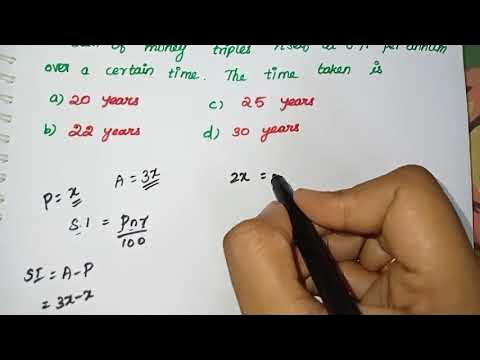 of money triples itself at 8% per annum
over a certain time. The time taken is
a) 20 years
c) 25 years
b) 22 years
d) 30 years
P = x
A = 3x
2x =
S.I = Pnr
100
SI = A-P
= 3x-x